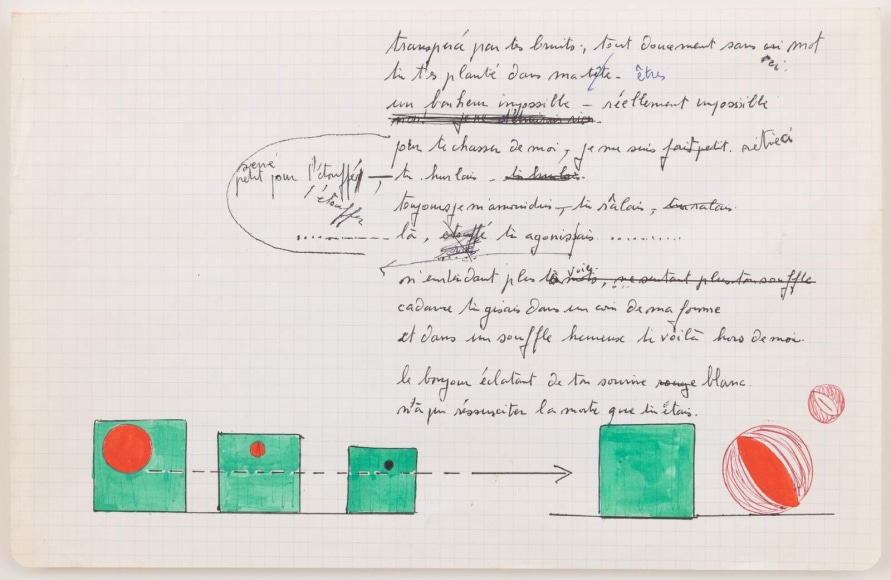 transpercé par tes bruits, tout doucement sans un mot
tu t'es planté dans ma tête - êtres
un bonheur impossible - réellement impossible
pour te chasser de moi, je me suis fait petit. rétréci
serré
petit pour l'étouffer
l'étouffer
tu hurlais - tu hurlais.
toujours je m'amoindris, tu râlais, tu ralais
là, étouffé tu agonisais
n'entendant plus ta voix, ne sentant plus ton souffle
cadavre tu gisais dans un coin de ma forme
et dans un souffle heureux te voilà hors de moi.
le bonjour éclatant de ton sourire rouge blanc.
n'a pu ressusciter la morte que tu étais.